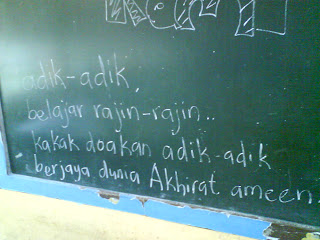 adik-adik,
belajar rajin-rajin..
kakak doakan adik-adik
berjaya dunia Akhirat ameen.